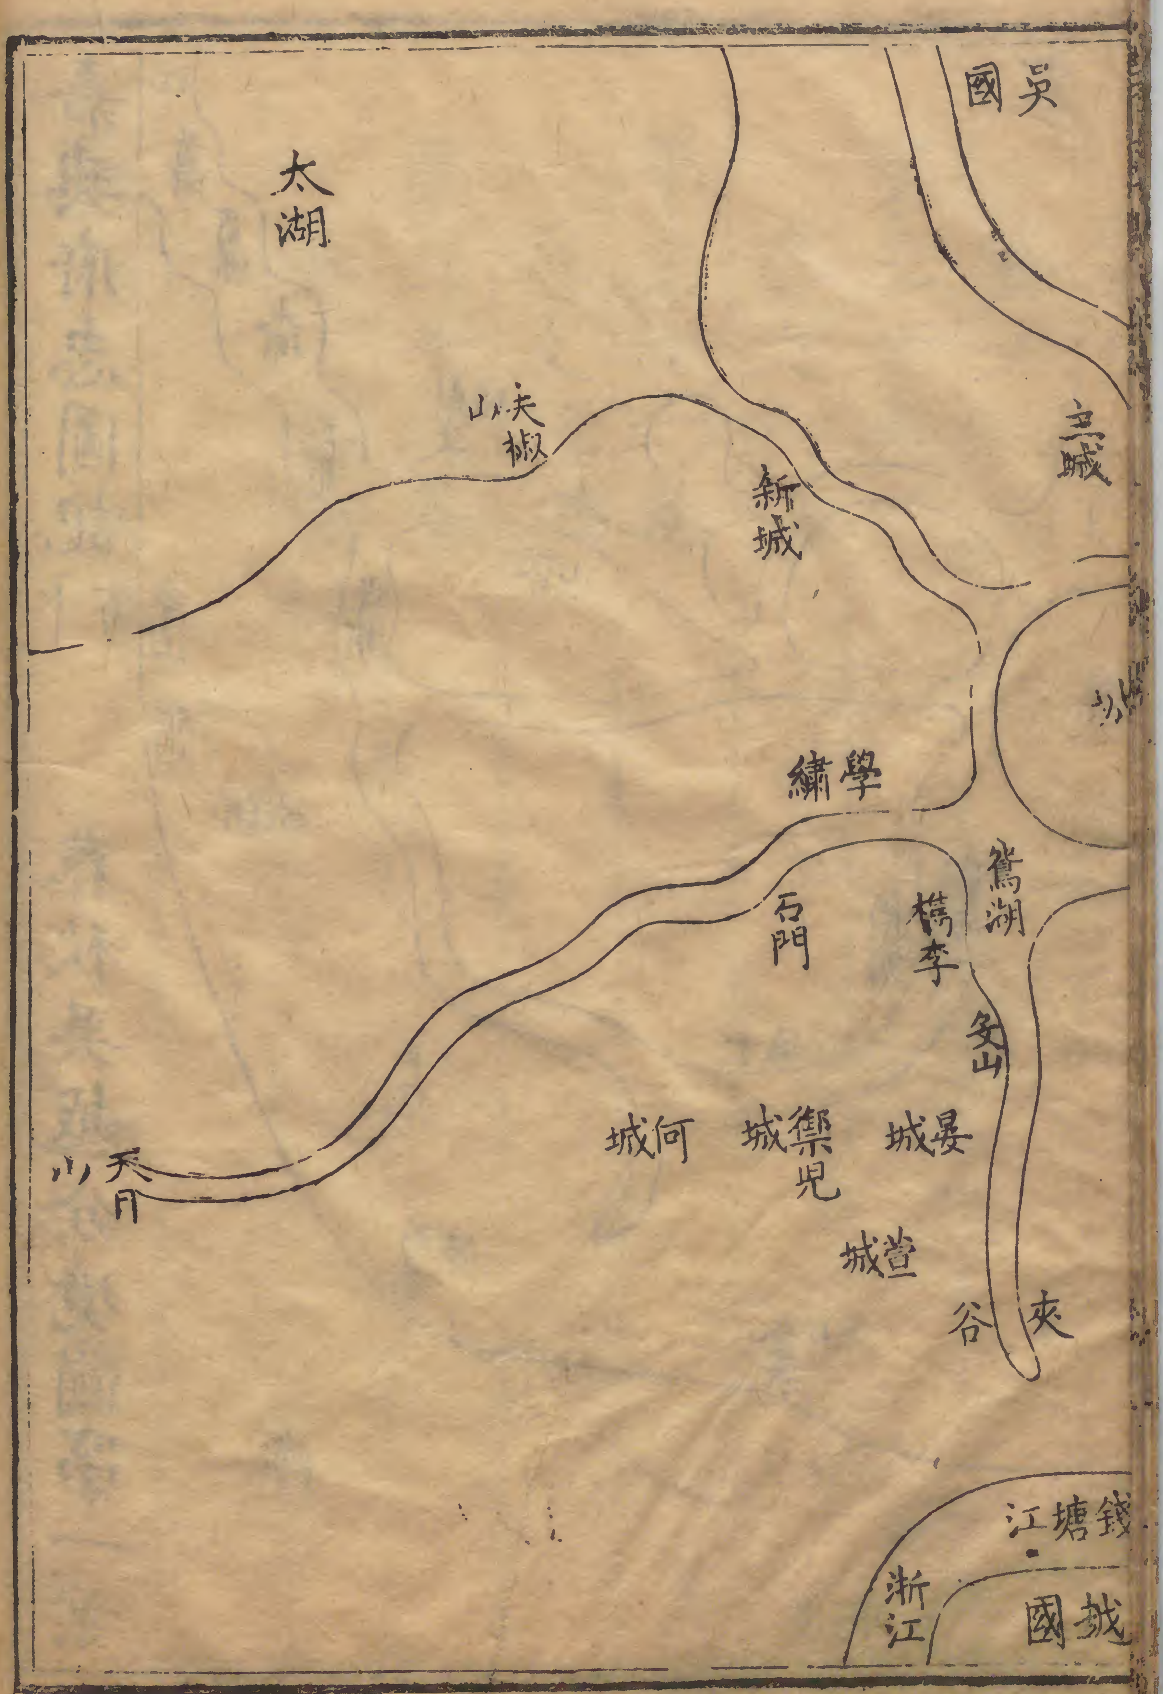 吳國
太湖
夫椒山
新城
學繡
鴛湖
石門
檇李
晏城
禦兒城
何城
萱城
夾谷
錢塘江
浙江
國